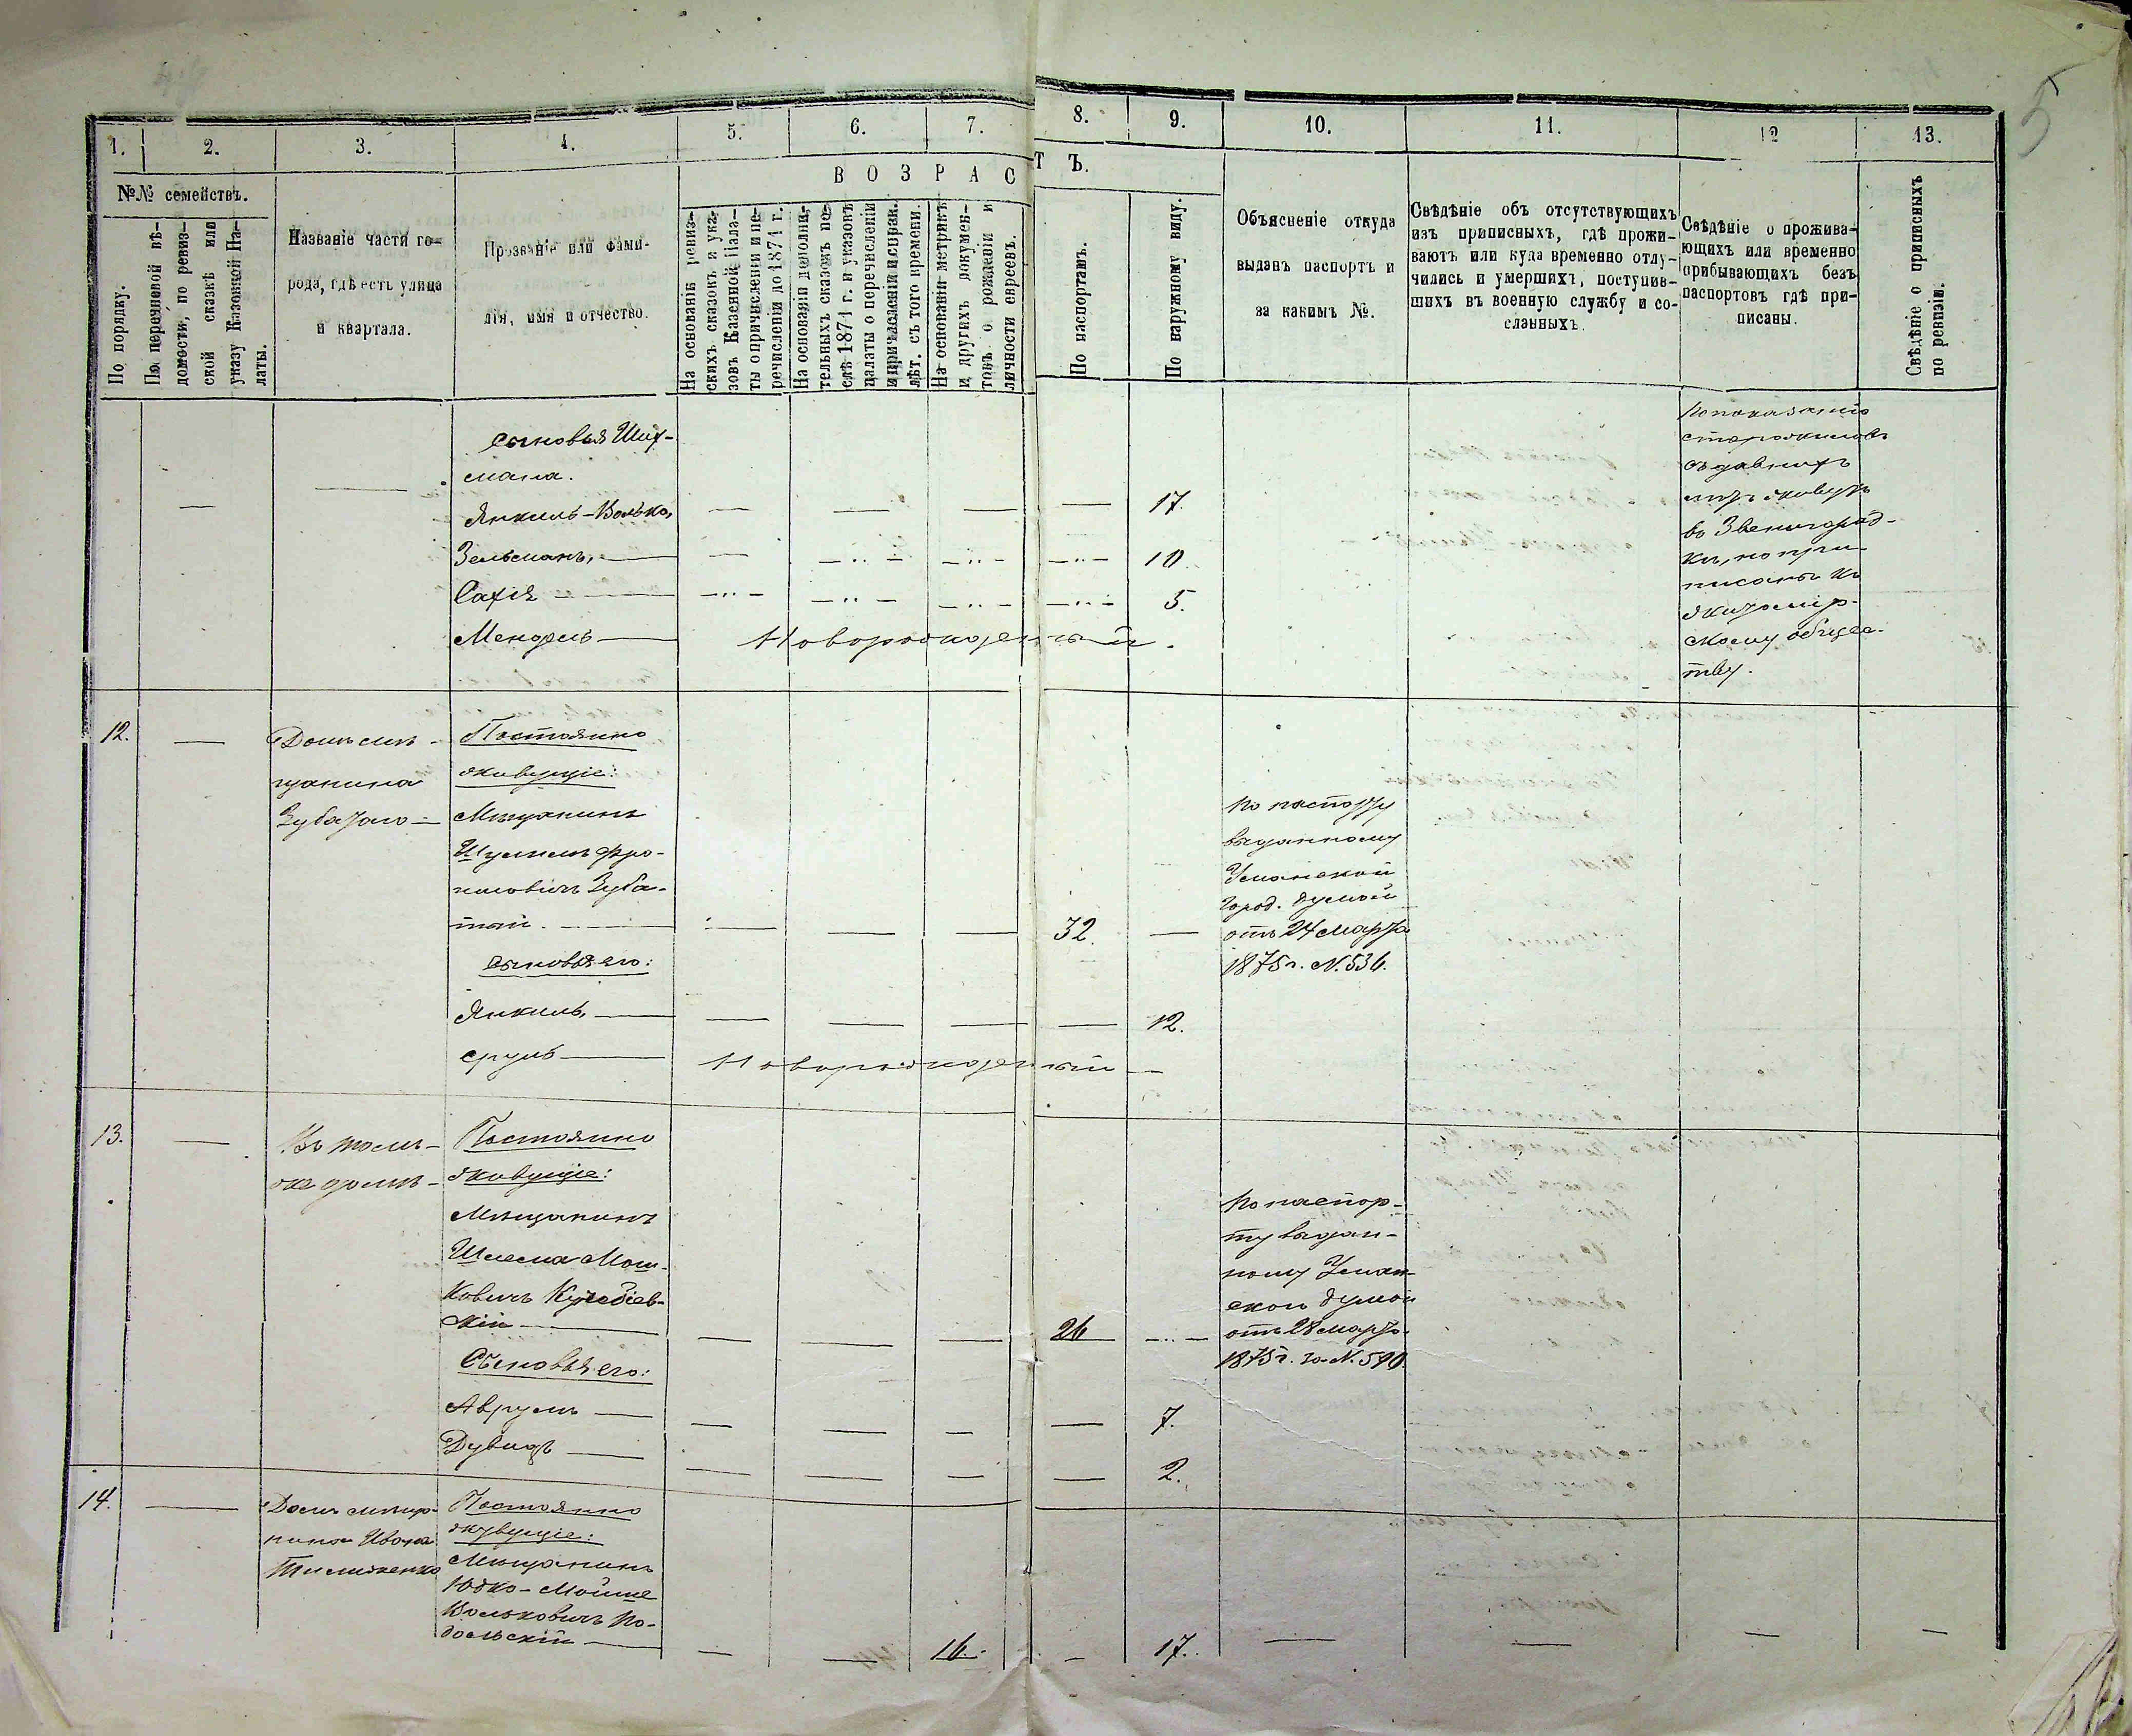 5
1.
2.
3.
4.
5.
6.
7.
8.
9.
10.
11.
12
13.
№№ семействъ.
По порядку.
По перечневой вѣ-
домости, по ревиз-
ской сказкѣ или
указу Казенной Па-
латы.
Названіе части го-
рода, гдѣ есть улица
и квартала.
Прозваніе или фами-
лія, имя и отчество.
ВОЗРАСТЪ.
На основаніи ревиз-
скихъ сказокъ и ука-
зовъ Казенной Пала-
ты о причисленіи и пе-
речисленіи до 1874 г.
На основаніи дополни-
тельныхъ сказокъ по-
слѣ 1874 г. и указовъ
палаты о перечисленіи
и причисленіи и исправ.
лѣт. съ того времени.
На основаніи метрикъ
и другихъ докумен-
товъ о рожденіи и
личности евреевъ.
По паспортамъ.
По наружному виду.
Объясненіе откуда
выданъ паспортъ и
за какимъ №.
Свѣдѣніе объ отсутствующихъ
изъ приписныхъ, гдѣ прожи-
ваютъ или куда временно отлу-
чились и умершихъ, поступив-
шихъ въ военную службу и со-
сланныхъ.
Свѣдѣніе о прожива-
ющихъ или временно
прибывающихъ безъ
паспортовъ гдѣ при-
писаны.
Свѣдѣніе о приписныхъ
по ревизіи.
Сыновья Шух-
мана.
Янкель-Волько, — — — — 17.
Зельманъ, — — — — 10
— — — — 5.
Мендель — Новорожденный.
По показанію
старожиловъ
съ давнихъ
лѣтъ живутъ
въ Звенигород-
кѣ, но при-
писаны къ
Житомір-
скому общес-
тву.
12.
Домъ мѣ-
щанина
Зубатаго —
Постоянно
живущіе:
Мѣщанинъ
Шулимъ Фро-
имовичъ Зуба-
тый. — — — — 32. —
Сыновья его:
Янкель, — — — — 12.
Сруль — Новорожденный —
По паспорту
выданному
Уманской
Город. Думой
отъ 24 Марта
1875 г. N. 536.
13.
Въ томъ-
же домѣ-
Постоянно
живущіе:
Мѣщанинъ
Шлема Мош-
ковичъ
скій — — — — 26
Сыновья его:
Аврумъ — — — — 7.
Дувидъ — — — — 2.
По паспор-
ту выдан-
ному Уман-
ской Думой
отъ 28 Марта
1875 г. за N. 590.
14.
Домъ мѣща-
нина Ивана
Тимошенко
Постоянно
живущіе:
Мѣщанинъ
Юдко-Мойше
Вольковичъ По-
дольскій — — — 16. — 17. — — — —